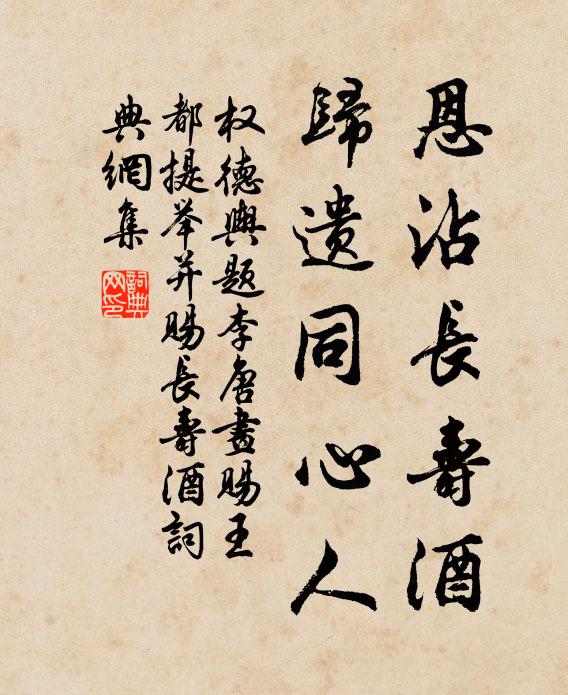 恩沾長壽酒
歸遺同心人
权德輿题李唐畫赐王
都提举并赐長壽酒詞
典網集
詞典网印